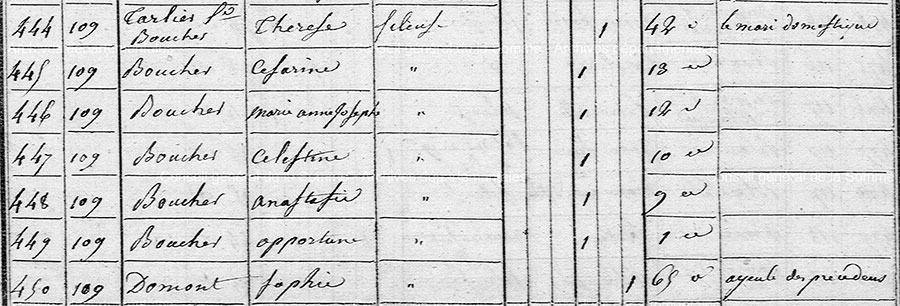 444 109 Tarlier fe
Boucher Therese fileuse 1 42 id le mari domestique
445 109 Boucher Cesarine " 1 13 id
446 109 Boucher marie anne Josephe " 1 12 id
447 109 Boucher Celestine " 1 10 id
448 109 Boucher anastasie " 1 9 id
449 109 Boucher opportune " 1 1 id
450 109 Domont sophie " 1 65 id ayeule des précédens